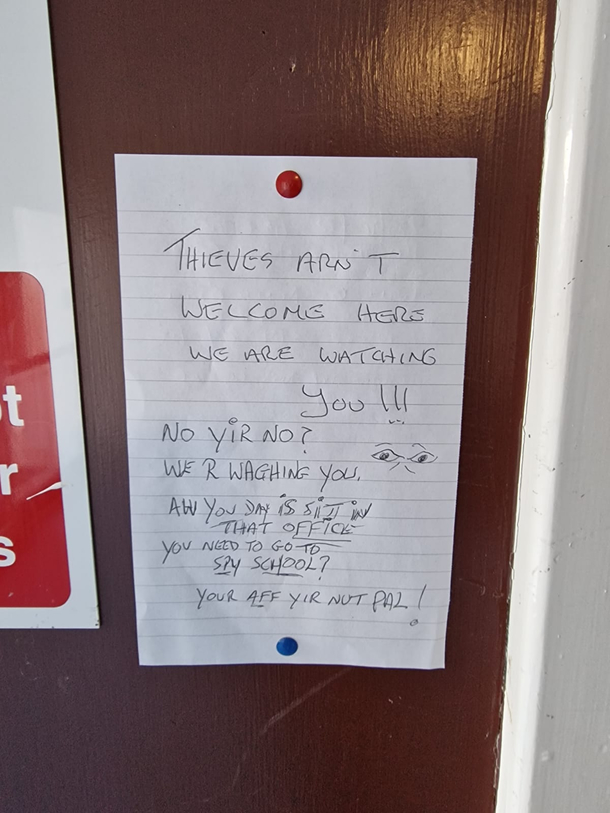 t
r
s
THIEVES ARN'T
WELCOME HERE
WE ARE WATCHING
YOU !!!
NO YIR NO?
WE R WAGHING YOU.
AW YOU DAY IS SIT IN
THAT OFFICE
YOU NEED TO GO TO
SPY SCHOOL?
YOUR AFF YIR NUT PAL!